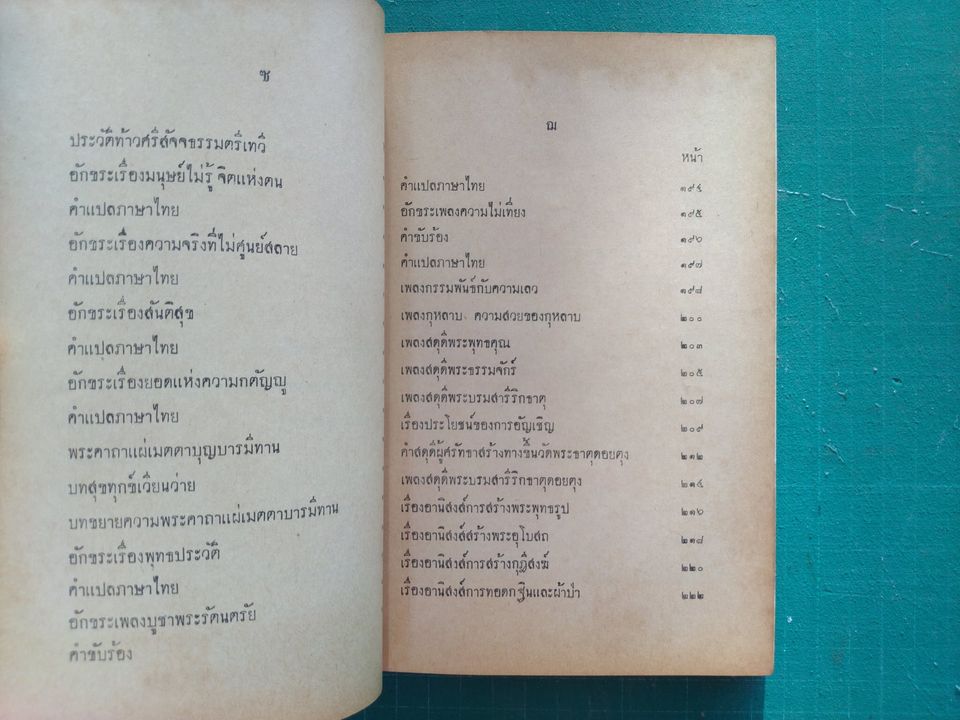 ซ
ประวัติท้าวศรีสัจจธรรมตรีเทวี
อักขระเรื่องมนุษย์ไม่รู้ จิตแห่งตน
คำแปลภาษาไทย
อักขระเรื่องความจริงที่ไม่ศูนย์สลาย
คำแปลภาษาไทย
อักขระเรื่องสันติสุข
คำแปลภาษาไทย
อักขระเรื่องยอดแห่งความกตัญญู
คำแปลภาษาไทย
พระคาถาแผ่เมตตาบุญบารมีทาน
บทสุขทุกข์เวียนว่าย
บทขยายความพระคาถาแผ่เมตตาบารมีทาน
อักขระเรื่องพุทธประวัติ
คำแปลภาษาไทย
อักขระเพลงบูชาพระรัตนตรัย
คำขับร้อง
ฌ
หน้า
คำแปลภาษาไทย ๑๙๔
อักขระเพลงความไม่เที่ยง ๑๙๕
คำขับร้อง ๑๙๖
คำแปลภาษาไทย ๑๙๗
เพลงกรรมพันธ์กับความเลว ๑๙๘
เพลงกุหลาบ ความสวยของกุหลาบ ๒๐๐
เพลงสดุดีพระพุทธคุณ ๒๐๓
เพลงสดุดีพระธรรมจักร์ ๒๐๕
เพลงสดุดีพระบรมสารีริกธาตุ ๒๐๗
เรื่องประโยชน์ของการอัญเชิญ ๒๐๙
คำสดุดีผู้ศรัทธาสร้างทางขึ้นวัดพระธาตุดอยตุง ๒๑๒
เพลงสดุดีพระบรมสารีริกธาตุดอยตุง ๒๑๔
เรื่องอานิสงส์การสร้างพระพุทธรูป ๒๑๖
เรื่องอานิสงส์สร้างพระอุโบสถ ๒๑๘
เรื่องอานิสงส์การสร้างกุฏิสงฆ์ ๒๒๐
เรื่องอานิสงส์การทอดกฐินและผ้าป่า ๒๒๒